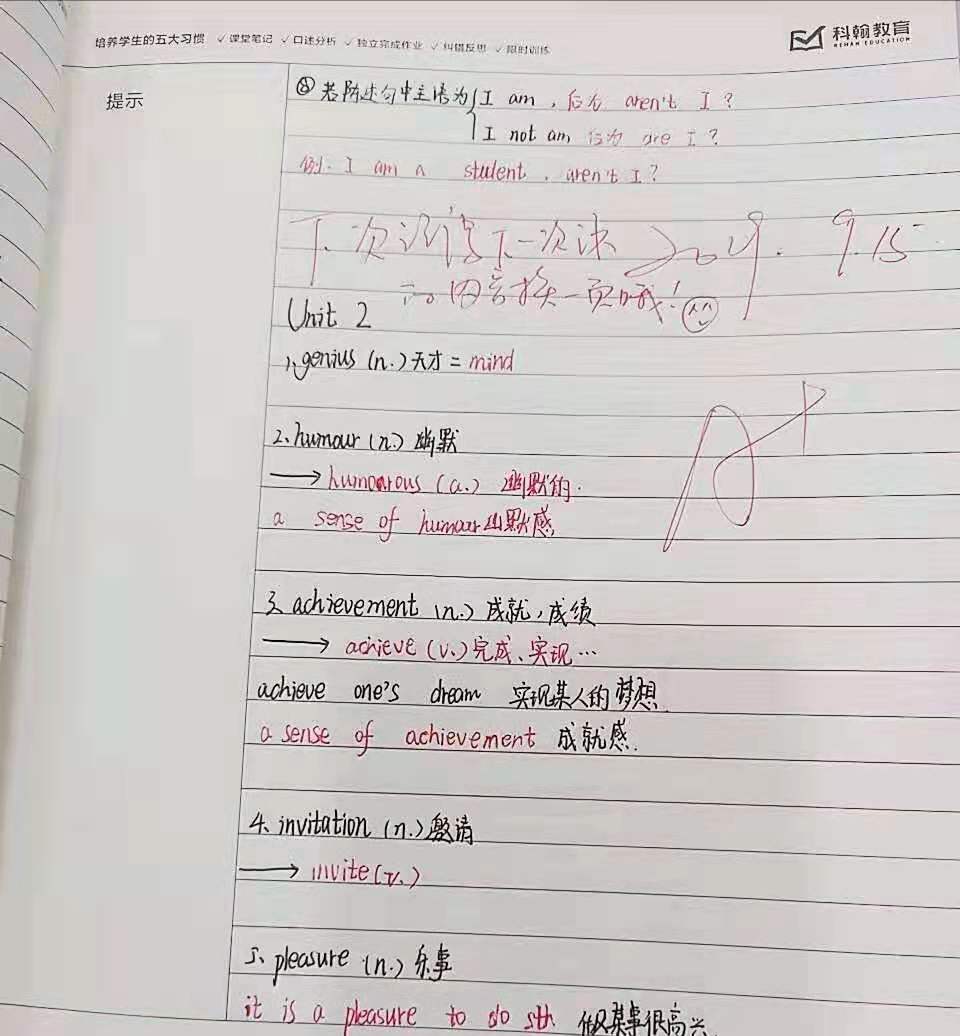 培养学生的五大习惯 ✓课堂笔记 ✓口述分析 ✓独立完成作业 ✓纠错反思 ✓限时训练
科翰教育
KEHAN EDUCATION
提示
⑧若陈述句中主语为 I am,后为 aren't I?
I not am 后为 are I?
例. I am a student, aren't I?
下次 下一次课 2019. 9.15
内容换一页哦!
Unit 2
1、genius (n.) 天才 = mind
2、humour (n.) 幽默
→ humourous (a.) 幽默的.
a sense of humour 幽默感
3、achievement (n.) 成就,成绩
→ achieve (v.) 完成、实现…
achieve one's dream 实现某人的梦想
a sense of achievement 成就感.
4、invitation (n.) 邀请
→ invite (v.)
5、pleasure (n.) 乐事
it is a pleasure to do sth 做某事很高兴
A+